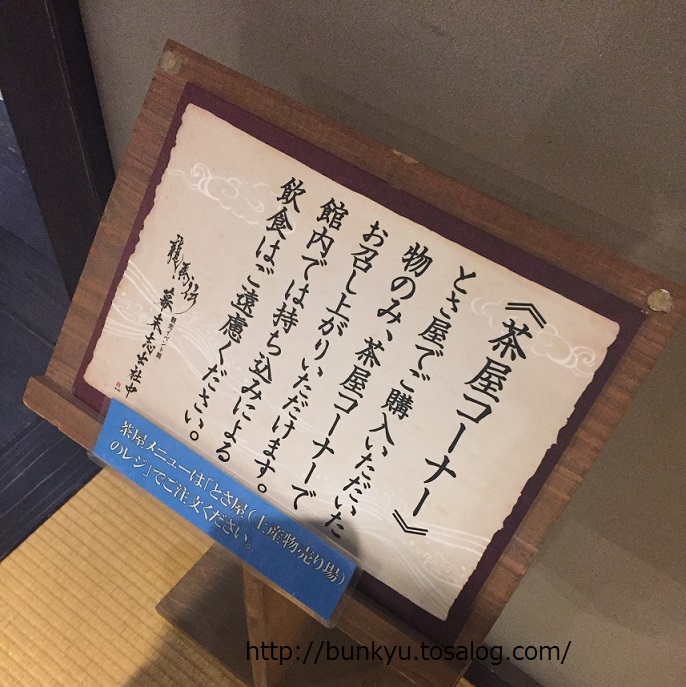 《茶屋コーナー》
とさ屋でご購入いただいた
物のみ、茶屋コーナーで
お召し上がりいただけます。
館内では持ち込みによる
飲食はご遠慮ください。
龍馬伝
幕末志士社中
茶屋メニューは「とさ屋（土産物売り場）
のレジ」でご注文ください。
http://bunkyu.tosalog.com/